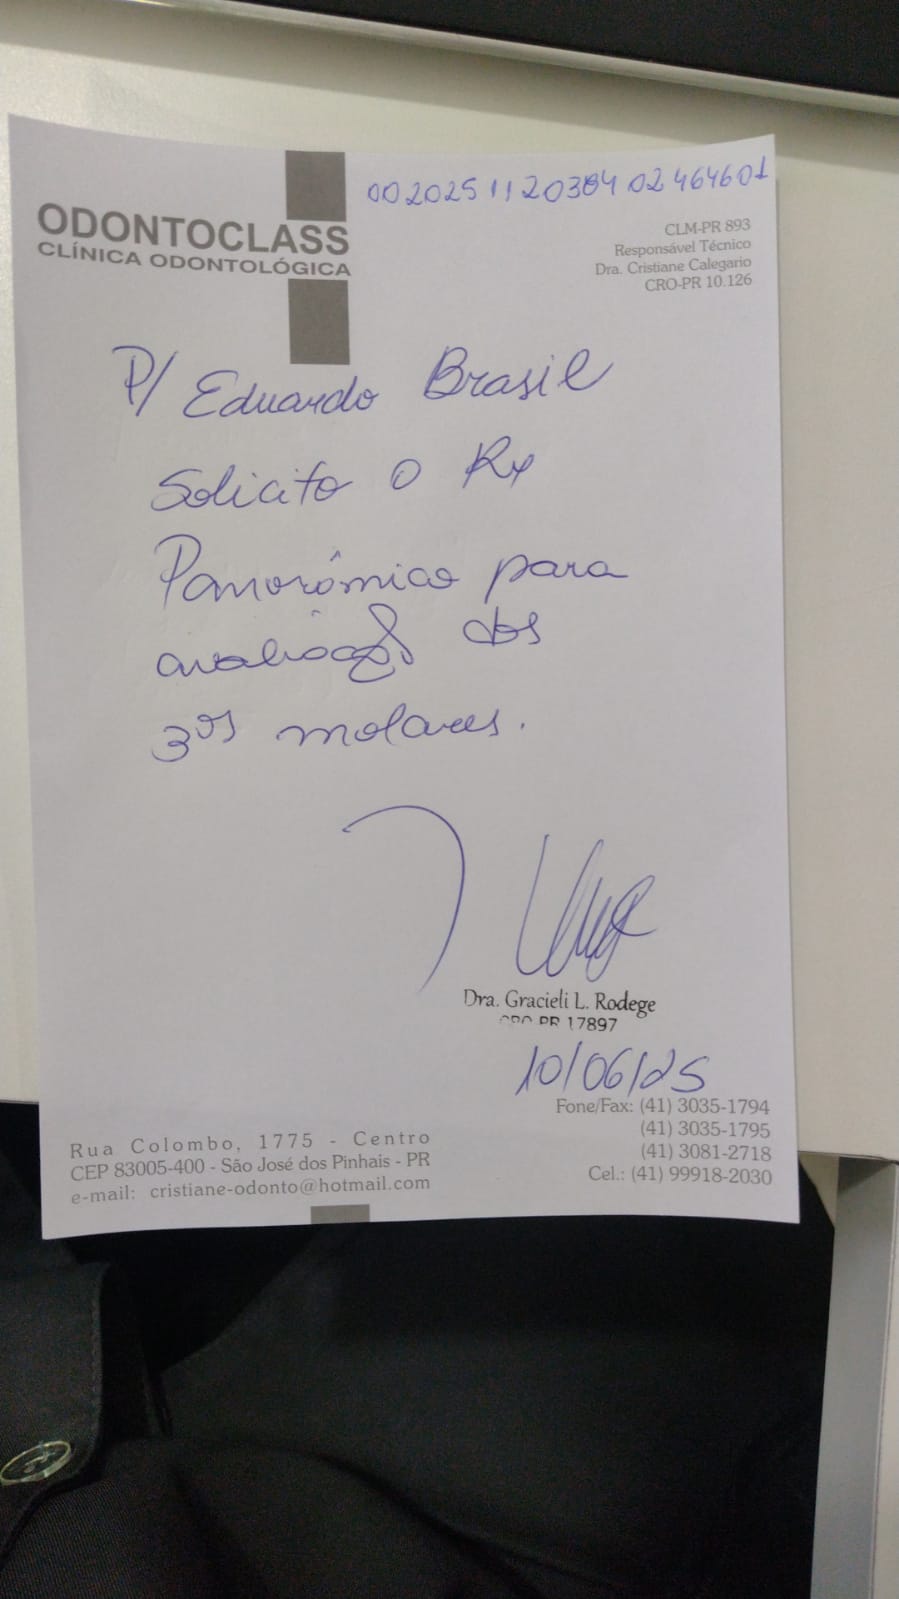 002025112038402464601
ODONTOCLASS
CLÍNICA ODONTOLÓGICA
CLM-PR 893
Responsável Técnico
Dra. Cristiane Calegario
CRO-PR 10.126
P/ Eduardo Brasil
Solicito o Rx
Panorâmico para
avaliação dos
3ºs molares.
Dra. Gracieli L. Rodege
CRO PR 17897
10/06/25
Fone/Fax: (41) 3035-1794
(41) 3035-1795
(41) 3081-2718
Cel.: (41) 99918-2030
Rua Colombo, 1775 - Centro
CEP 83005-400 - São José dos Pinhais - PR
e-mail: cristiane-odonto@hotmail.com